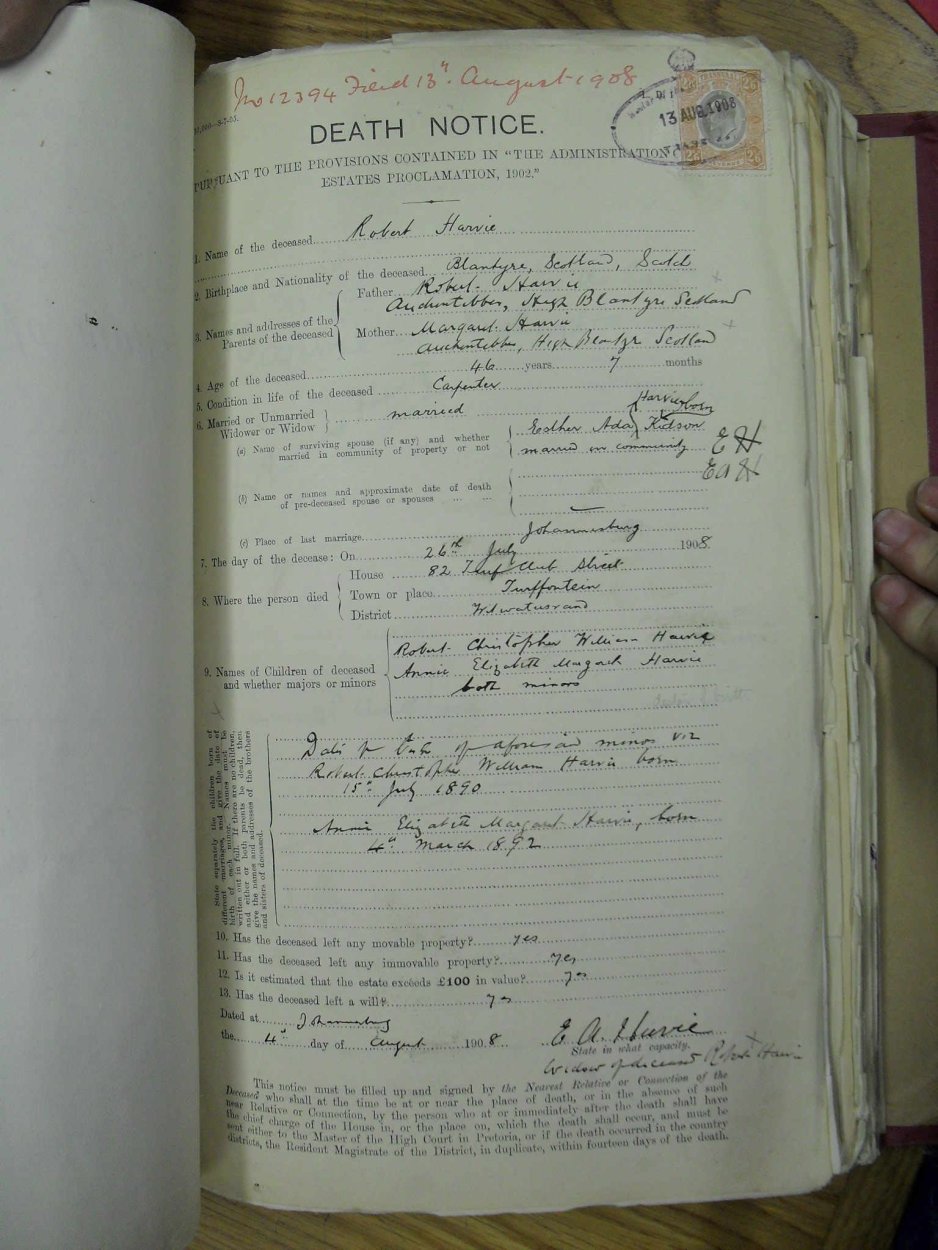 No 12394 Filed 13th August 1908
13 AUG 1908
2/6 2/6
DEATH NOTICE.
PURSUANT TO THE PROVISIONS CONTAINED IN "THE ADMINISTRATION O
ESTATES PROCLAMATION, 1902."
1. Name of the deceased Robert Harvie
2. Birthplace and Nationality of the deceased Blantyre, Scotland, Scotch
3. Names and addresses of the Parents of the deceased
Father Robert Harvie
Auchentibber, High Blantyre Scotland
Mother Margaret Harvie
Auchentibber, High Blantyre Scotland
4. Age of the deceased 46 years 7 months
5. Condition in life of the deceased Carpenter
6. Married or Unmarried Widower or Widow married
(a) Name of surviving spouse (if any) and whether married in community of property or not
Esther Ada Harvie born Kidson
married in community
E H
E A H
(b) Name or names and approximate date of death of pre-deceased spouse or spouses
(c) Place of last marriage Johannesburg
7. The day of the decease: On 26th July 1908
8. Where the person died
House 82 Turf Club Street
Town or place Turffontein
District Witwatersrand
9. Names of Children of deceased and whether majors or minors
Robert Christopher William Harvie
Annie Elizabeth Margaret Harvie
both minors
State separately the children born of
different marriages, and give the date of
birth of each minor. Names must be
written out in full. If there are no children,
and either or both parents be dead, then
give the names and addresses of the brothers
and sisters of deceased.
Date of birth of aforesaid minors viz
Robert Christopher William Harvie born
15th July 1890
Annie Elizabeth Margaret Harvie, born
4th March 1892
10. Has the deceased left any movable property? yes
11. Has the deceased left any immovable property? yes
12. Is it estimated that the estate exceeds £100 in value? yes
13. Has the deceased left a will? yes
Dated at Johannesburg
the 4th day of August 1908
E. A. Harvie
State in what capacity.
Widow of deceased Robert Harvie
This notice must be filled up and signed by the Nearest Relative or Connection of the
Deceased who shall at the time be at or near the place of death, or in the absence of such
near Relative or Connection, by the person who at or immediately after the death shall have
the chief charge of the House in, or the place on, which the death shall occur, and must be
sent either to the Master of the High Court in Pretoria, or if the death occurred in the country
districts, the Resident Magistrate of the District, in duplicate, within fourteen days of the death.